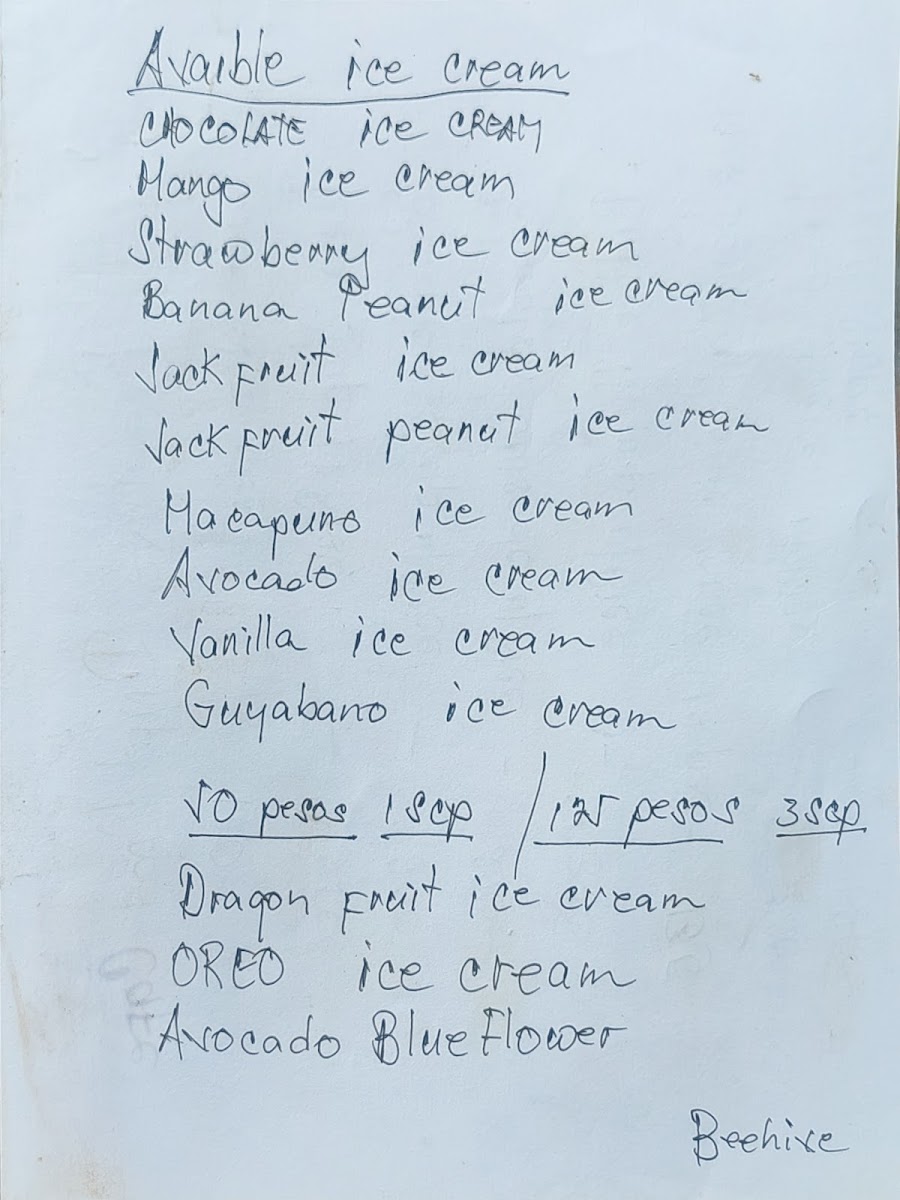 Avaible ice cream
CHOCOLATE ice CREAM
Mango ice cream
Strawberry ice cream
Banana Peanut ice cream
Jack fruit ice cream
Jack fruit peanut ice cream
Macapuno ice cream
Avocado ice cream
Vanilla ice cream
Guyabano ice cream
50 pesos 1 scp / 125 pesos 3 scp
Dragon fruit ice cream
OREO ice cream
Avocado Blue Flower
Beehive